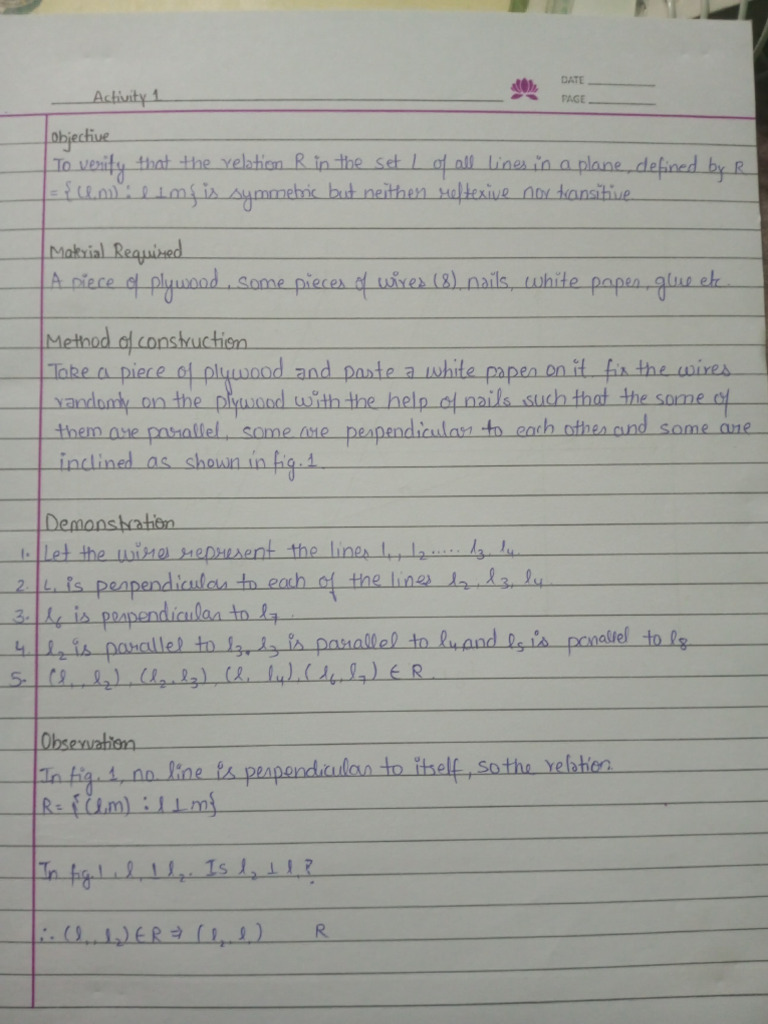 Activity 1
DATE
PAGE
Objective
To verify that the relation R in the set L of all lines in a plane, defined by R
= {(l,m) : l ⊥ m} is symmetric but neither reflexive nor transitive
Material Required
A piece of plywood, some pieces of wires (8), nails, white paper, glue etc.
Method of construction
Take a piece of plywood and paste a white paper on it fix the wires
randomly on the plywood with the help of nails such that the some of
them are parallel, some are perpendicular to each other and some are
inclined as shown in fig. 1.
Demonstration
1. Let the wires represent the lines l₁, l₂ ..... l₃, l₄.
2. L₁ is perpendicular to each of the lines l₂, l₃, l₄
3. l₆ is perpendicular to l₇.
4. l₂ is parallel to l₃, l₃ is parallel to l₄ and l₅ is parallel to l₈
5. (l₁, l₂), (l₂, l₃), (l₁, l₄), (l₆, l₇) ∈ R.
Observation
In fig. 1, no line is perpendicular to itself, so the relation
R = {(l,m) : l ⊥ m}
In fig 1, l₁ ⊥ l₂. Is l₂ ⊥ l₁?
∴ (l₁, l₂) ∈ R ⇒ (l₂, l₁) R